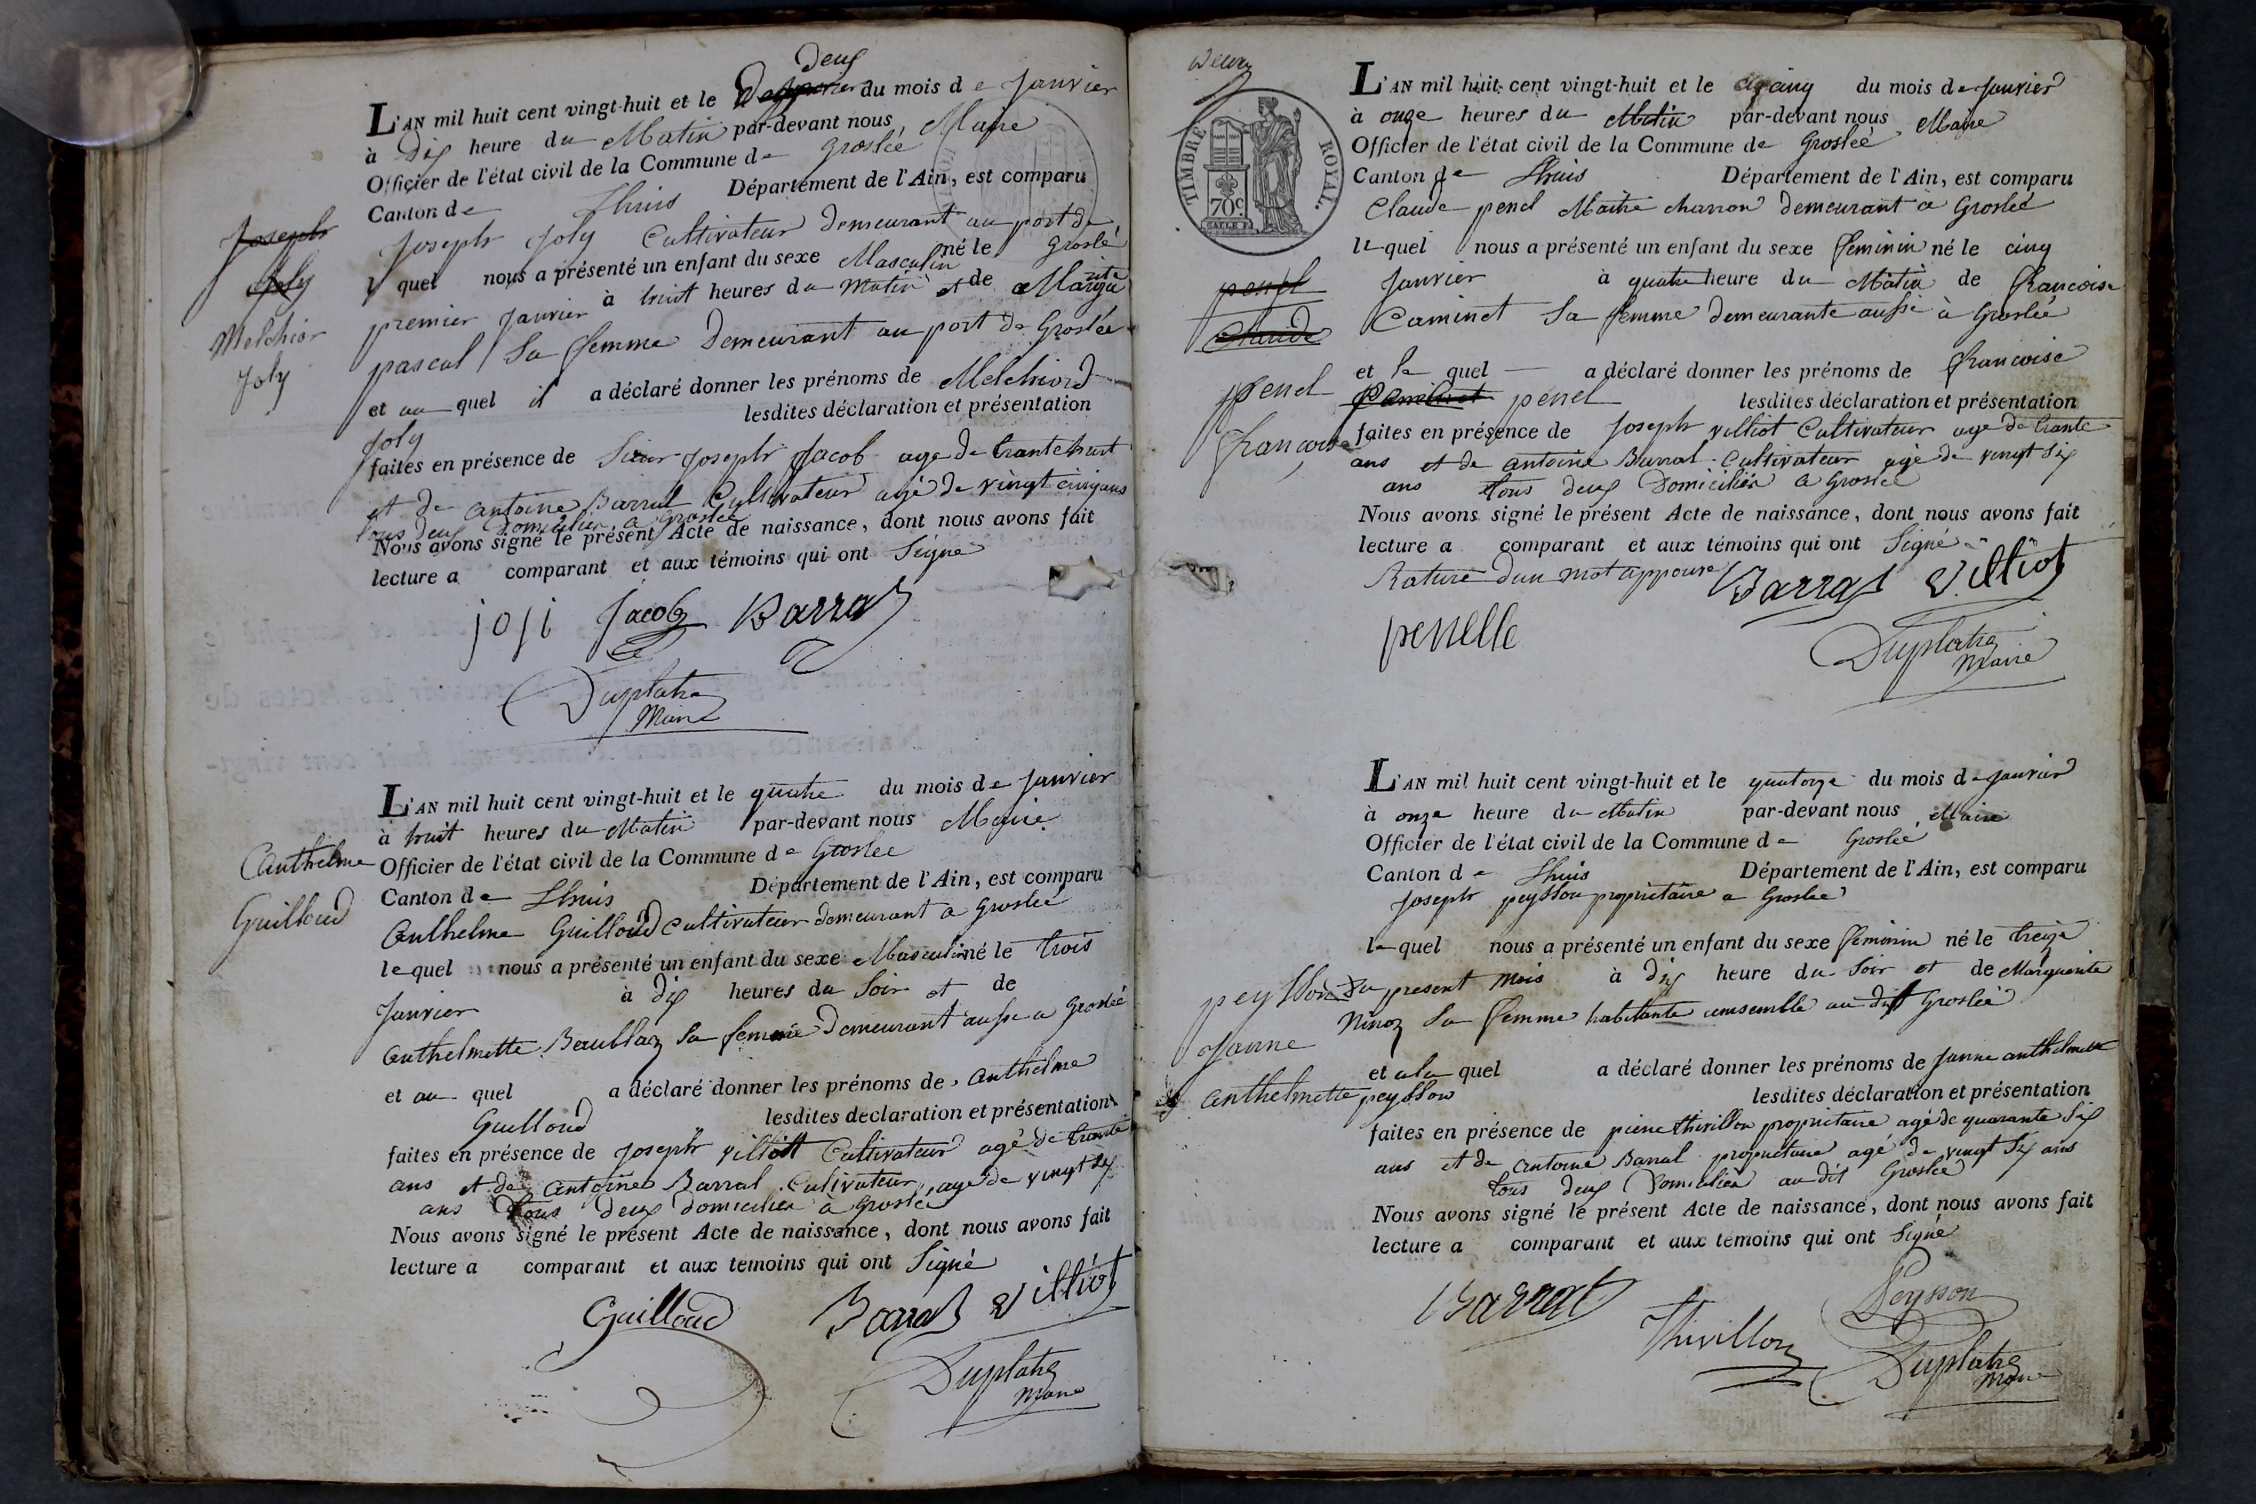 Deux
L'AN mil huit cent vingt-huit et le du mois de Janvier
à Dix heure du Matin par-devant nous Maire
Officier de l'état civil de la Commune de Groslée
Canton de Lhuis Département de l'Ain, est comparu
Joseph Joly Cultivateur demeurant au port de
Groslé
l quel nous a présenté un enfant du sexe Masculin né le
premier Janvier à huit heures du Matin et de Marguerite
pascal Sa femme Demeurant au port de Groslée
et au quel il a déclaré donner les prénoms de Melchiord
Joly lesdites déclaration et présentation
faites en présence de Sieur Joseph Jacob age de trantehuit
et de antoine Barral Cultivateur agé de vingt cinq ans
tous deux Domicilier a Groslée
Nous avons signé le présent Acte de naissance, dont nous avons fait
lecture a comparant et aux témoins qui ont Signé
Joseph
Joly
Melchior
Joly
joli Jacob Barral
Duplatre
Maire
L'AN mil huit cent vingt-huit et le quatre du mois de Janvier
à huit heures du Matin par-devant nous Maire
Officier de l'état civil de la Commune de Groslée
Canton de Lhuis Département de l'Ain, est comparu
Anthelme Guilloud Cultivateur demeurant a Groslée
le quel nous a présenté un enfant du sexe Masculin né le trois
Janvier à dix heures du Soir et de
Anthelmette Beaublaz Sa femme Demeurant aussi a Groslée
et au quel a déclaré donner les prénoms de anthelme
Guilloud lesdites déclaration et présentation
faites en présence de Joseph villiot Cultivateur agé de trante
ans et de antoine Barral Cultivateur age de vingt Six
ans tous deux domicilier à Groslé
Nous avons signé le présent Acte de naissance, dont nous avons fait
lecture a comparant et aux témoins qui ont Signé
Anthelme
Guilloud
Guilloud Barral Villiot
Duplatre
Maire
TIMBRE ROYAL.
70c
L'AN mil huit cent vingt-huit et le cinq du mois de Janvier
à onze heures du Matin par-devant nous Maire
Officier de l'état civil de la Commune de Groslée
Canton de Lhuis Département de l'Ain, est comparu
Claude penel Maitre charron demeurant a Groslée
le quel nous a présenté un enfant du sexe feminin né le cinq
Janvier à quatre heure du Matin de francoise
Caminet Sa femme demeurante aussi à Groslée
et le quel a déclaré donner les prénoms de francoise
penel lesdites déclaration et présentation
faites en présence de Joseph villiot Cultivateur agé de trante
ans et de antoine Barral Cultivateur agé de vingt Six
ans tous deux Domicilier a Groslée
Nous avons signé le présent Acte de naissance, dont nous avons fait
lecture a comparant et aux témoins qui ont Signé
penel
Claude
penel
francoise
Rature dun mot appouvé Barral Villiot
penelle
Duplatre
Maire
L'AN mil huit cent vingt-huit et le quatorze du mois de Janvier
à onze heure du Matin par-devant nous Maire
Officier de l'état civil de la Commune de Groslée
Canton de Lhuis Département de l'Ain, est comparu
Joseph peysson propriétaire a Groslée
le quel nous a présenté un enfant du sexe feminin né le treize
Du present mois à dix heure du Soir et de Marguerite
Ninoz Sa femme habitante ensemble au dit Groslée
et a la quel a déclaré donner les prénoms de Janne anthelmette
peysson lesdites déclaration et présentation
faites en présence de pierre thivillon propriétaire agé de quarante Six
ans et de antoine Barral propriétaire agé de vingt Six ans
tous deux Domicilier au dit Groslée
Nous avons signé le présent Acte de naissance, dont nous avons fait
lecture a comparant et aux témoins qui ont Signé
peysson
Janne
anthelmette
Barral Thivillon Peysson
Duplatre
Maire